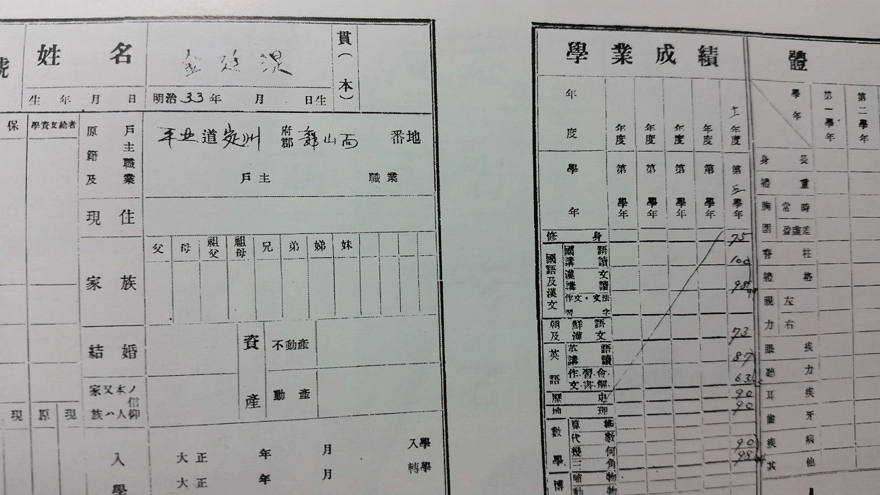 號 姓名 金廷湜 貫(本)
生年月日 明治33年 月 日生
保 學資支給者 原籍及 戶主職業 平北道定州 府郡 山面 番地
戶主 職業
現住
家族 父 母 祖父 祖母 兄 弟 姊 妹
結婚 資產 不動產
家族 又ハ 本人ノ信仰 動產
現 原 現
入學 大正 年 月 入學
大正 年 月 轉學
學業成績
年度 年度 年度 年度 年度 年度
學年 第 學年 第 學年 第 學年 第 學年 第 學年
修身 75
國語及漢文 國語講讀 100
漢文講讀 98
作文·文法
習字
朝鮮語及漢文 73
英語 英語講讀 87
作文.習字.會解. 63
歷史 90
地理 90
數學 算術
代數
幾何 90
三角 98
博 植物
動物
體
學年 第一學年 第二學年
身長
體重
胸圍 常時
盈虛差
脊柱
體格
視力 左
右
眼疾
聽力
耳疾
齒牙
疾病
其他